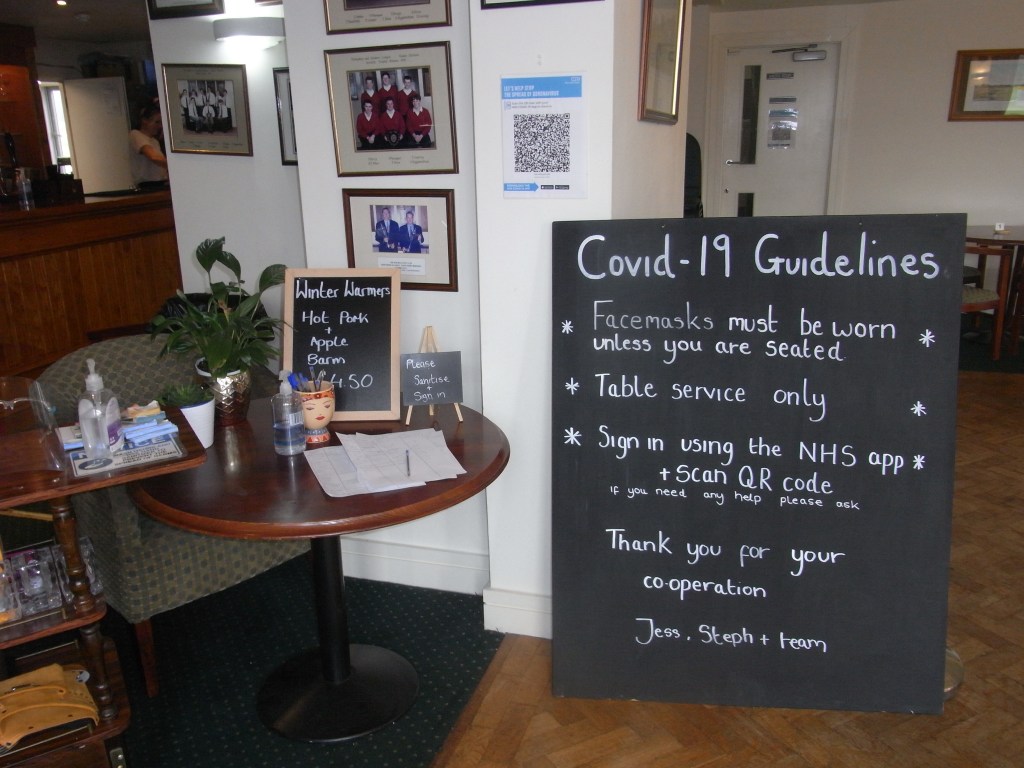 LET'S HELP STOP
THE SPREAD OF CORONAVIRUS
Winter Warmers
Hot Pork
+
Apple
Barm
4.50
Please
Sanitise
+
Sign in
Covid-19 Guidelines
* Facemasks must be worn *
unless you are seated
* Table service only *
* Sign in using the NHS app *
+ Scan QR code
If you need any help please ask
Thank you for your
co-operation
Jess, Steph + team